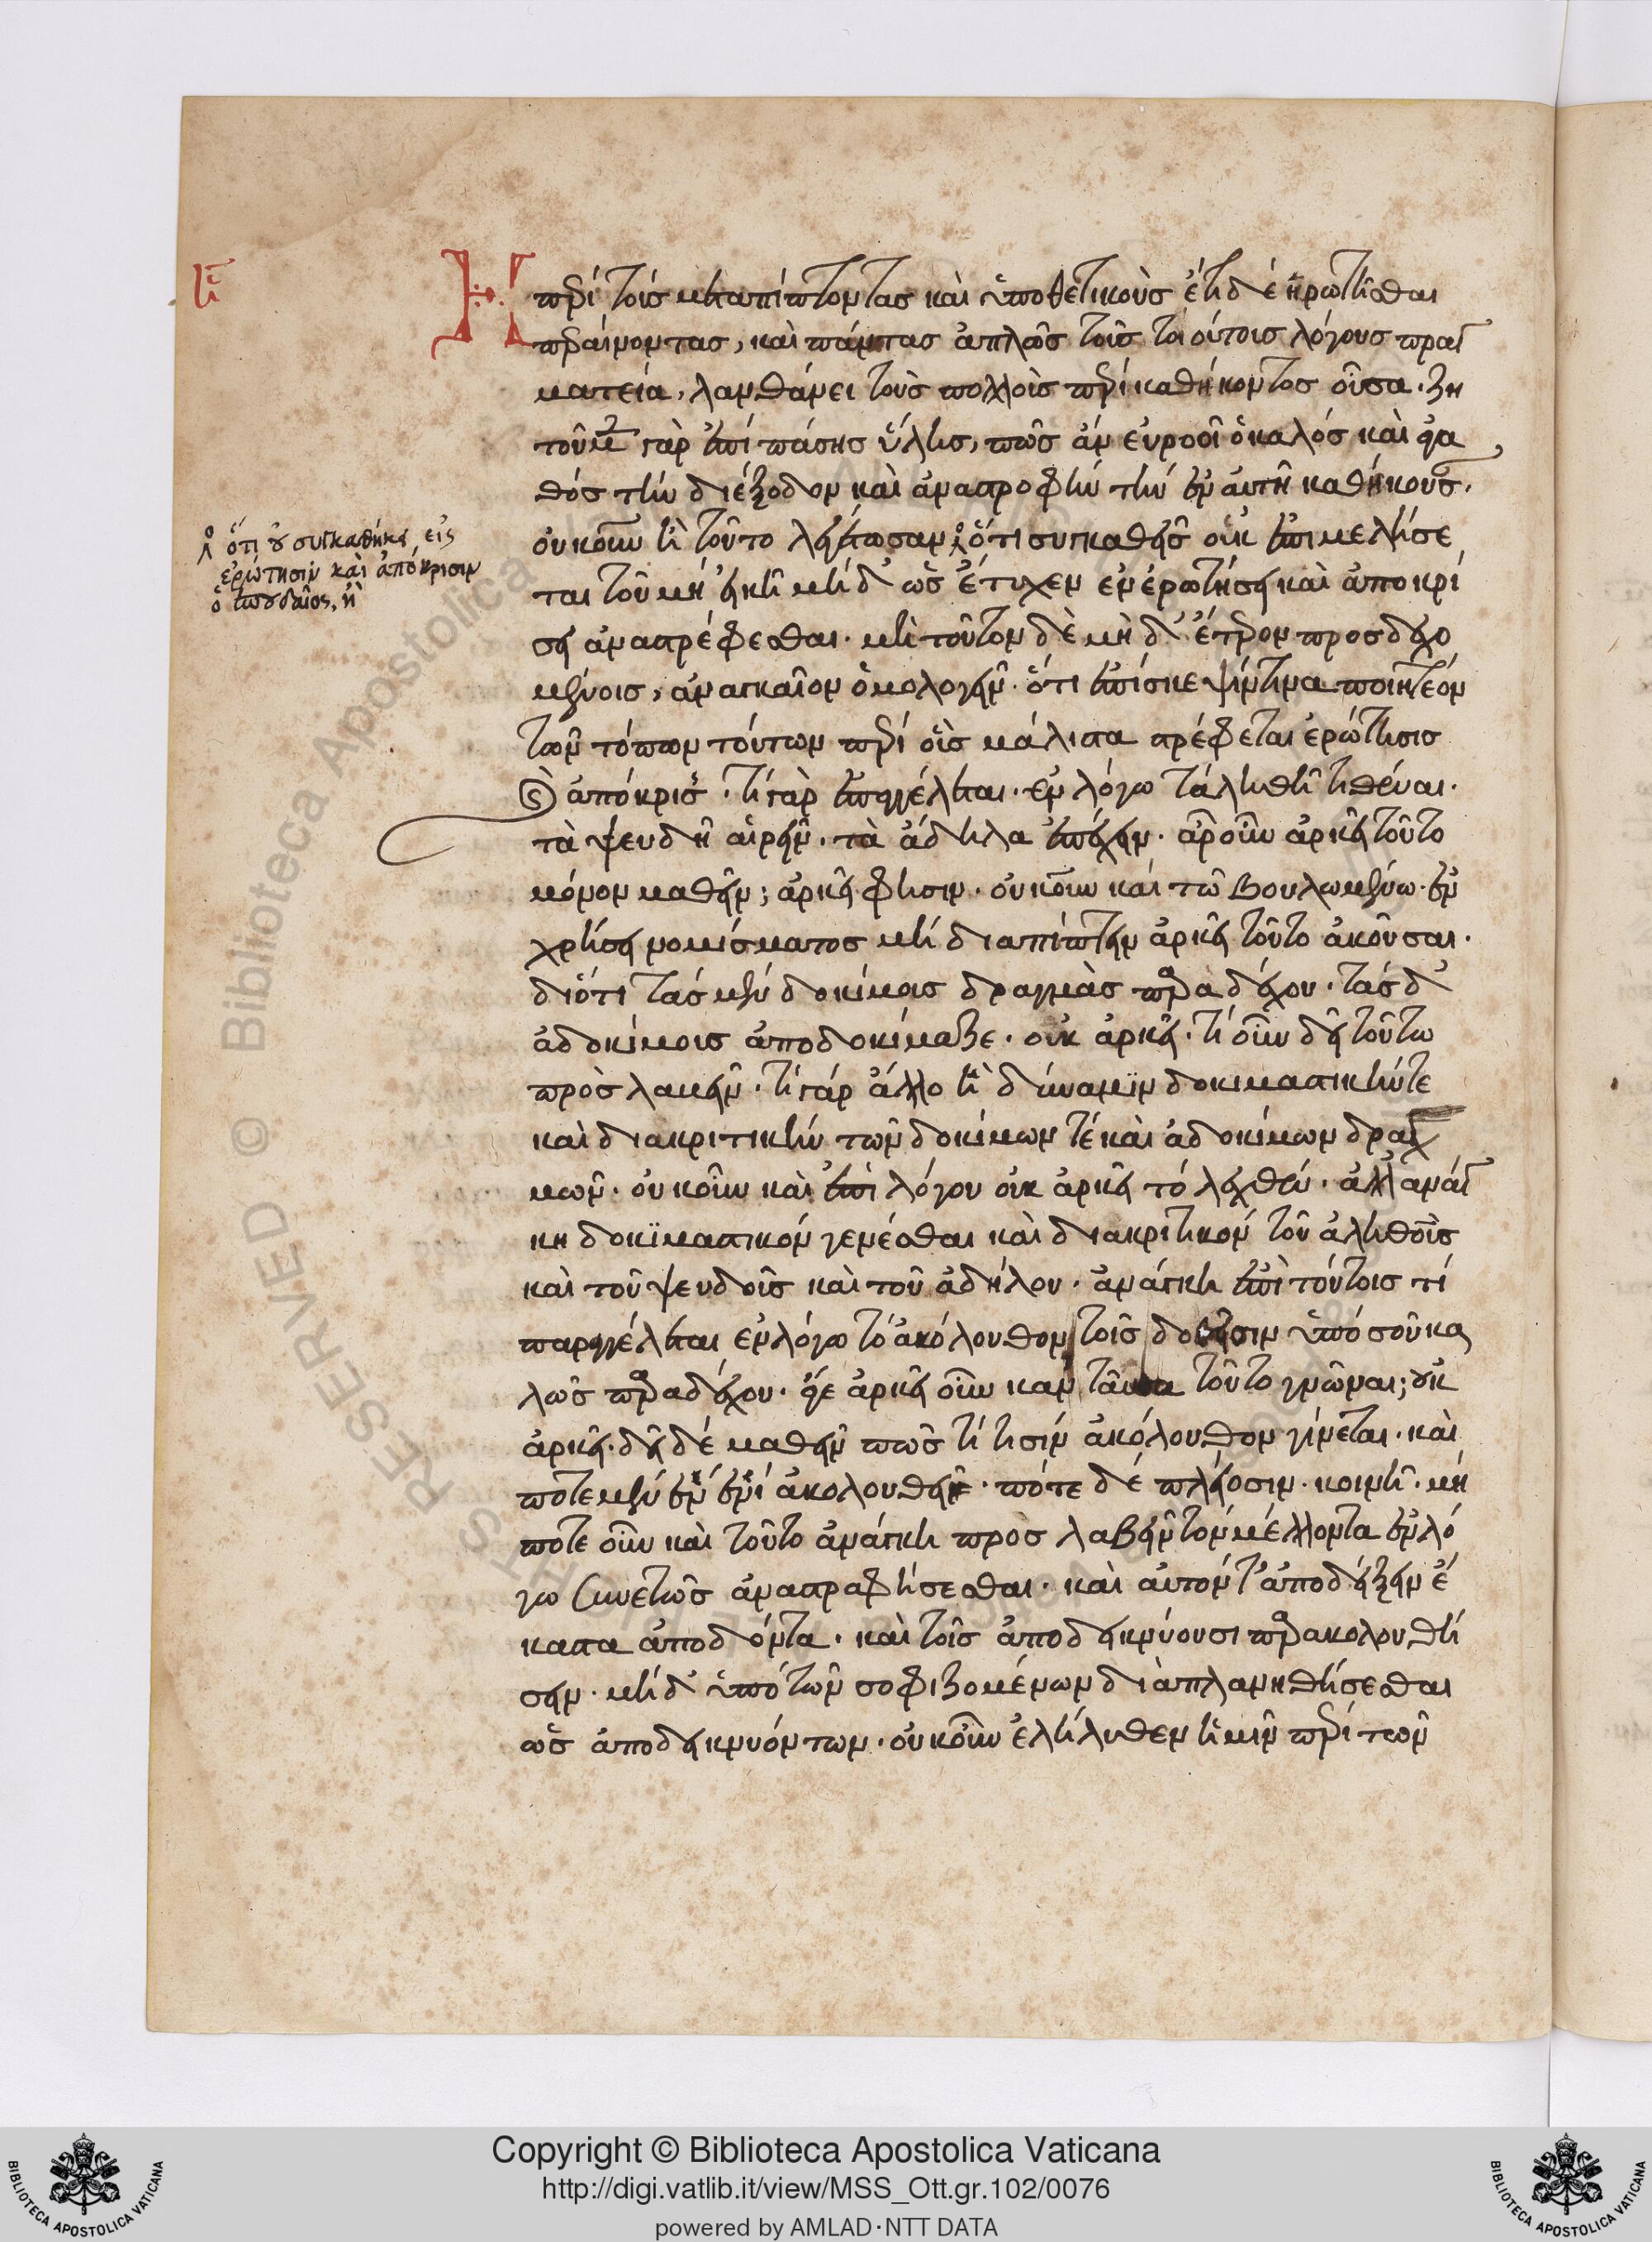 η̄
Ἡ περὶ τοὺς μεταπίπτοντας καὶ ὑποθετικοὺς ἔτι δέ ἠρωτῆσθαι
περαίνοντας, καὶ πάντας ἁπλῶς τοὺς τοιούτους λόγους πραγ
ματεία, λανθάνει τοὺς πολλοὺς περὶ καθήκοντος οὖσα. ζη
τοῦμεν γὰρ ἐπὶ πάσης ὕλης, πῶς ἂν εὕροι ὁ καλός καὶ ἀγα
θός τὴν διέξοδον καὶ ἀναστροφὴν τὴν ἐν αὐτῇ καθήκουσ.
ὅτι οὐ συγκαθήκει εἰς
ἐρώτησιν καὶ ἀπόκρισιν
ὁ σπουδαῖος, ἢ
οὐκοῦν ἢ τοῦτο λεγέτωσαν ὅτι συγκαθεῖς οὐκ ἐπιμελήσε
ται τοῦ μή εἰκῆ μὴ δ' ὡς ἔτυχεν ἐν ἐρωτήσει καὶ ἀποκρί
σει ἀναστρέφεσθαι. μὴ τοῦτον δὲ μὴ δ' ἕτερον προσδεχο
μένοις, ἀναγκαῖον ὁμολογεῖν. ὅτι ἐπίσκεψίν τινα ποιητέον
τῶν τόπων τούτων περὶ οὓς μάλιστα στρέφεται ἐρώτησις
καὶ ἀπόκρισις. τί γὰρ ἐπαγγέλεται. ἐν λόγω τἀληθῆ τιθέναι.
τὰ ψευδῆ αἱρεῖν. τὰ ἄδηλα ἐπέχειν. ἆρ οὖν ἀρκεῖ τοῦτο
μόνον μαθεῖν; ἀρκεῖ φησιν. οὐκοῦν καὶ τῶ βουλωμένω. ἐν
χρήσει νομίσματος μὴ διαπίπτειν ἀρκεῖ τοῦτο ἀκοῦσαι.
διότι τάς μὲν δοκίμους δραγμὰς παραδέχου. τάς δ'
ἀδοκίμους ἀποδοκίμαζε. οὐκ ἀρκεῖ. τί οὖν δεῖ τοῦτω
προσλαβεῖν. τί γάρ ἄλλο ἢ δύναμϊν δοκιμαστικήν τε
καὶ διακριτικὴν τῶν δοκίμων τέ καὶ ἀδοκίμων δραχ
μῶν. οὐκοῦν καὶ ἐπὶ λόγου οὐκ ἀρκεῖ τό λεχθέν. ἀλλ' ἀνάγ
κη δοκϊμαστικόν γενέσθαι καὶ διακριτικόν τοῦ ἀληθοῦς
καὶ τοῦ ψευδοῦς καὶ τοῦ ἀδήλου. ἀνάγκη ἐπὶ τούτοις τί
παραγγέλεται ἐν λόγω τό ἀκόλουθον τοῖς δοθεῖσιν ὑπό σοῦ κα
λῶς παραδέχου. ἄγε ἀρκεῖ οὖν κἀνταῦθα τοῦτο γνῶναι; οὐκ
ἀρκεῖ. δεῖ δέ μαθεῖν πῶς τί τισίν ἀκόλουθον γίνεται. καὶ
ποτε μὲν ἓν ἑνί ἀκολουθεῖ. πότε δέ πλείοσιν. κοινῆ. μή
ποτε οὖν καὶ τοῦτο ἀνάγκη προσλαβεῖν τόν μέλλοντα ἐν λό
γω συνετῶς ἀναστραφήσεσθαι. καὶ αὐτόν τ' ἀποδείξειν ἕ
καστα ἀποδόντα. καὶ τοῖς ἀποδεικνύουσι παρακολουθή
σειν. μὴ δ' ὑπό τῶν σοφιζομένων διαπλανηθήσεσθαι
ὡς ἀποδεικνυόντων. οὐκοῦν ἐλήλυθεν ἡμῖν περὶ τῶν
Copyright © Biblioteca Apostolica Vaticana
http://digi.vatlib.it/view/MSS_Ott.gr.102/0076
powered by AMLAD·NTT DATA
BIBLIOTECA APOSTOLICA VATICANA
BIBLIOTECA APOSTOLICA VATICANA